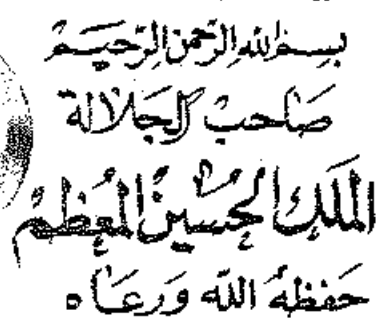 بسم الله الرحمن الرحيم
صاحب الجلالة
الملك الحسين المعظم
حفظه الله ورعاه